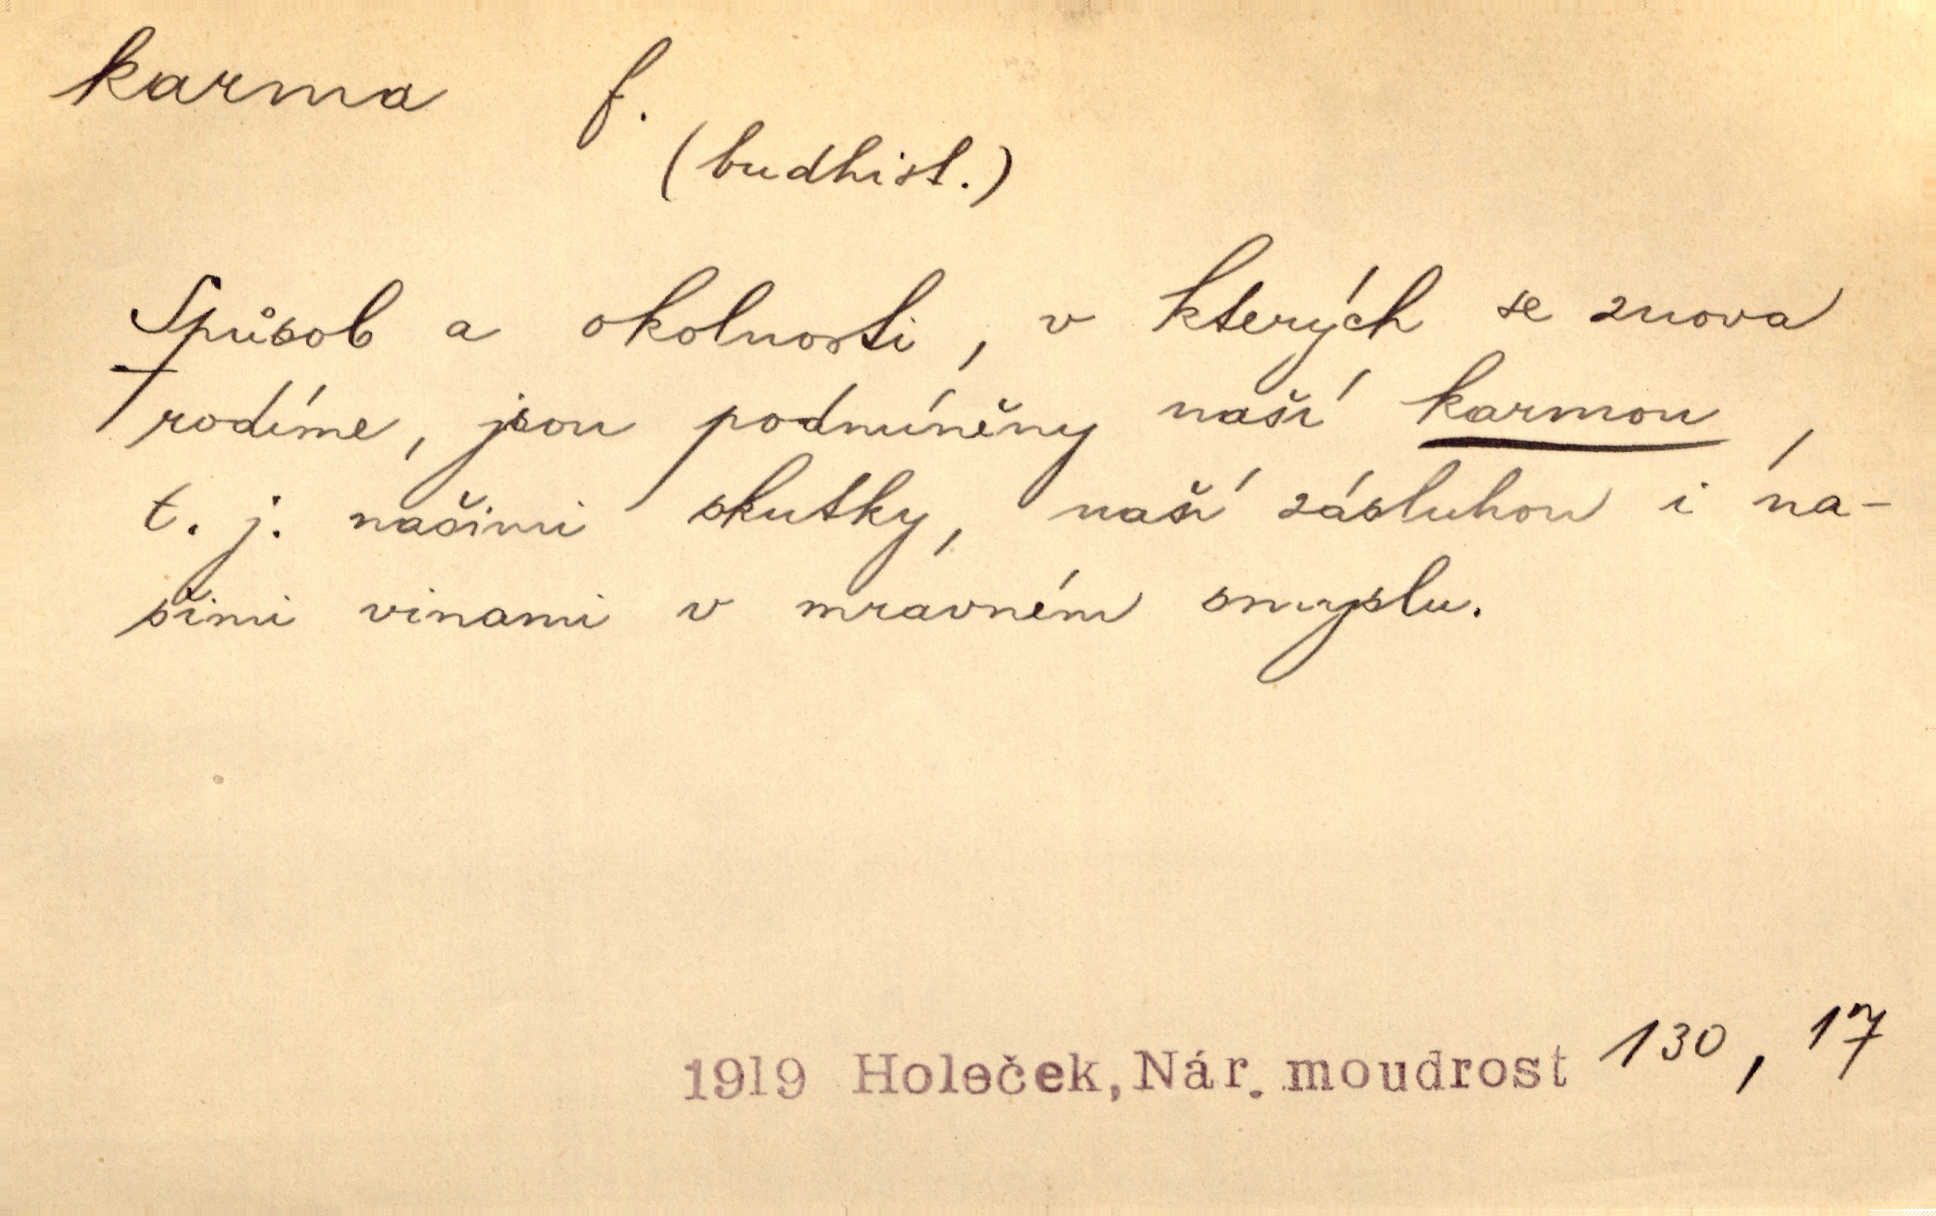 karma f.
(budhist.)
Spůsob a okolnosti, v kterých se znova
rodíme, jsou podmíněny naší karmou,
t. j. našimi skutky, naší zásluhou i na-
šimi vinami v mravném smyslu.
1919 Holeček, Nár. moudrost 130, 17